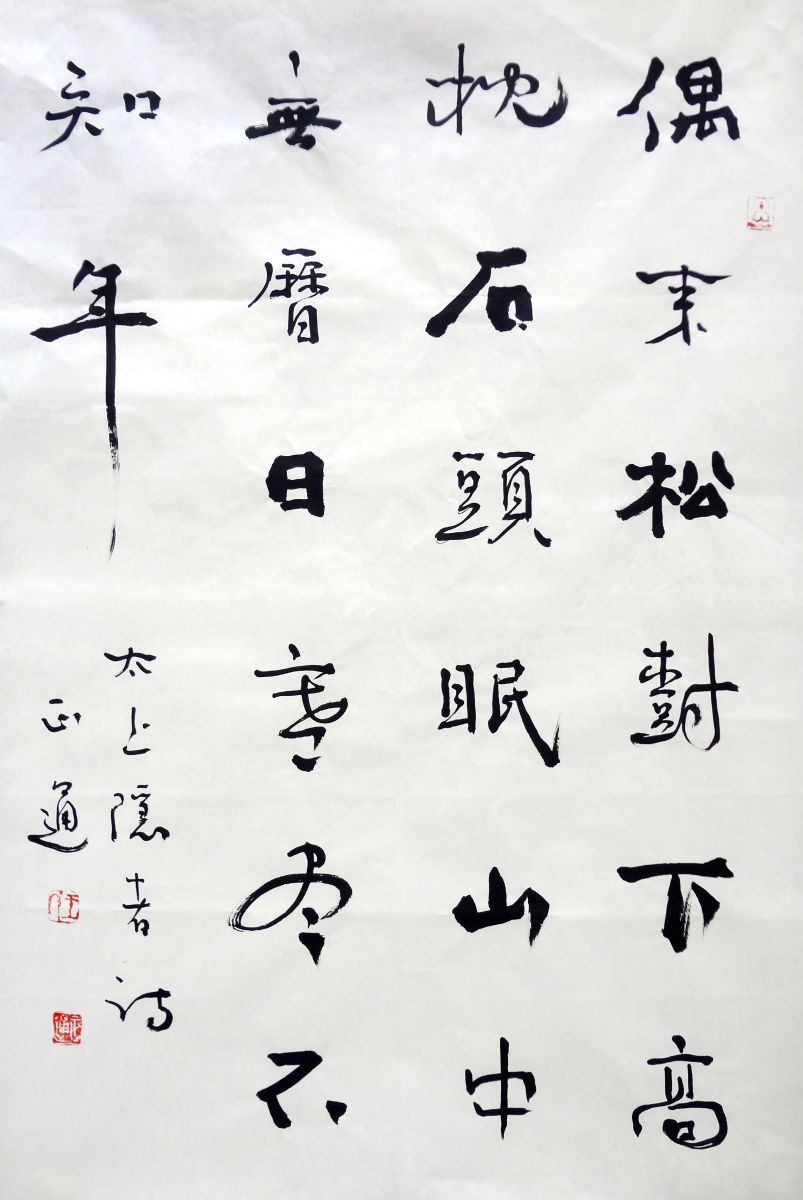 偶来松樹下高
枕石頭眠山中
無曆日寒尽不
知年
太上隱者诗
正通